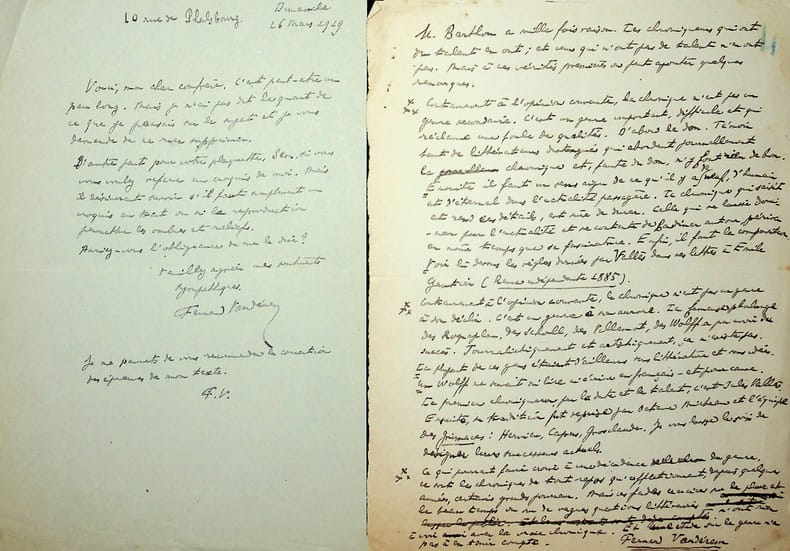 10 rue de Phalsbourg.
Dimanche
26 Mars 1929
Voici, mon cher confrère. C'est peut-être un
peu long. Mais je n'ai pas dit le quart de
ce que je pensais sur le sujet et je vous
demande de ne rien supprimer.
D'autre part pour votre plaquette, Sem, si vous
voulez refera un croquis de moi. Mais
il désirerait savoir s'il faut simplement un
croquis au trait ou si la reproduction
permettra les ombres et reliefs.
Auriez-vous l'obligeance de me le dire ?
Veuillez agréer mes sentiments
sympathiques.
Fernand Vandérem
Je me permets de vous recommander la correction
des épreuves de mon texte.
F.V.
M. Barthou a mille fois raison. Les chroniqueurs qui ont
du talent en ont ; et ceux qui n'ont pas de talent n'en ont
pas. Mais à ces vérités premières on peut ajouter quelques
remarques.
Contrairement à l'opinion courante, la chronique n'est pas un
genre secondaire. C'est un genre important, difficile et qui
réclame une foule de qualités. D'abord le don. Témoin
tant de littérateurs distingués qui abordent journellement
la chronique et, faute du don, n'y font rien de bon.
Ensuite il faut un sens aigu de ce qu'il y a de neuf, d'humain
et d'éternel dans l'actualité passagère. La chronique qui saisit
et rend ces détails, est sûre de durer. Celle qui se laisse domi-
-ner par l'actualité et se contente de badiner autour, périra
en même temps que ses fascinatrice. Enfin, il faut la composition.
Voir là-dessus les règles données par Vallès dans ses lettres à Emile
Gautier (Revue indépendante 1885).
Contrairement à l'opinion courante, la chronique n'est pas un genre
à son déclin. C'est un genre à son aurore. La fameuse phalange
des Roqueplan, des Scholl, des Villemot, des Wolff a pu avoir du
succès. Journalistiquement et artistiquement, ça n'existe pas.
La plupart de ces gens étaient d'ailleurs sans littérature et sans idées.
Un Wolff ne savait ni lire ni écrire en français - et pour cause.
Le premier chroniqueur, par la date et le talent, c'est Jules Vallès.
Ensuite, sa tradition fut reprise par Octave Mirbeau et l'équipe
des Grimaces : Hervieu, Capus, Grosclaude. Je vous laisse le soin de
désigner leurs successeurs actuels.
Ce qui pourrait faire croire à une décadence du genre,
ce sont les chroniques de tout repos qu'affectionnent, depuis quelques
années, certains grands journaux. Mais ces fades causeries sur la pluie et
le beau temps ou sur de vagues questions littéraires n'ont rien
à voir avec la vraie chronique. Et une étude sur le genre n'a
pas à en tenir compte.
Fernand Vandérem